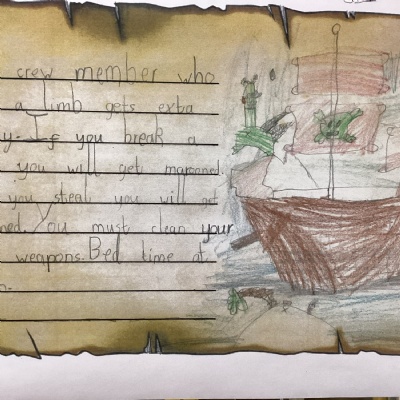 crew member who
a limb gets extra
y. If you break a
you will get marooned.
you steal you will ge
ned. You must clean your
weapons. Bed time at